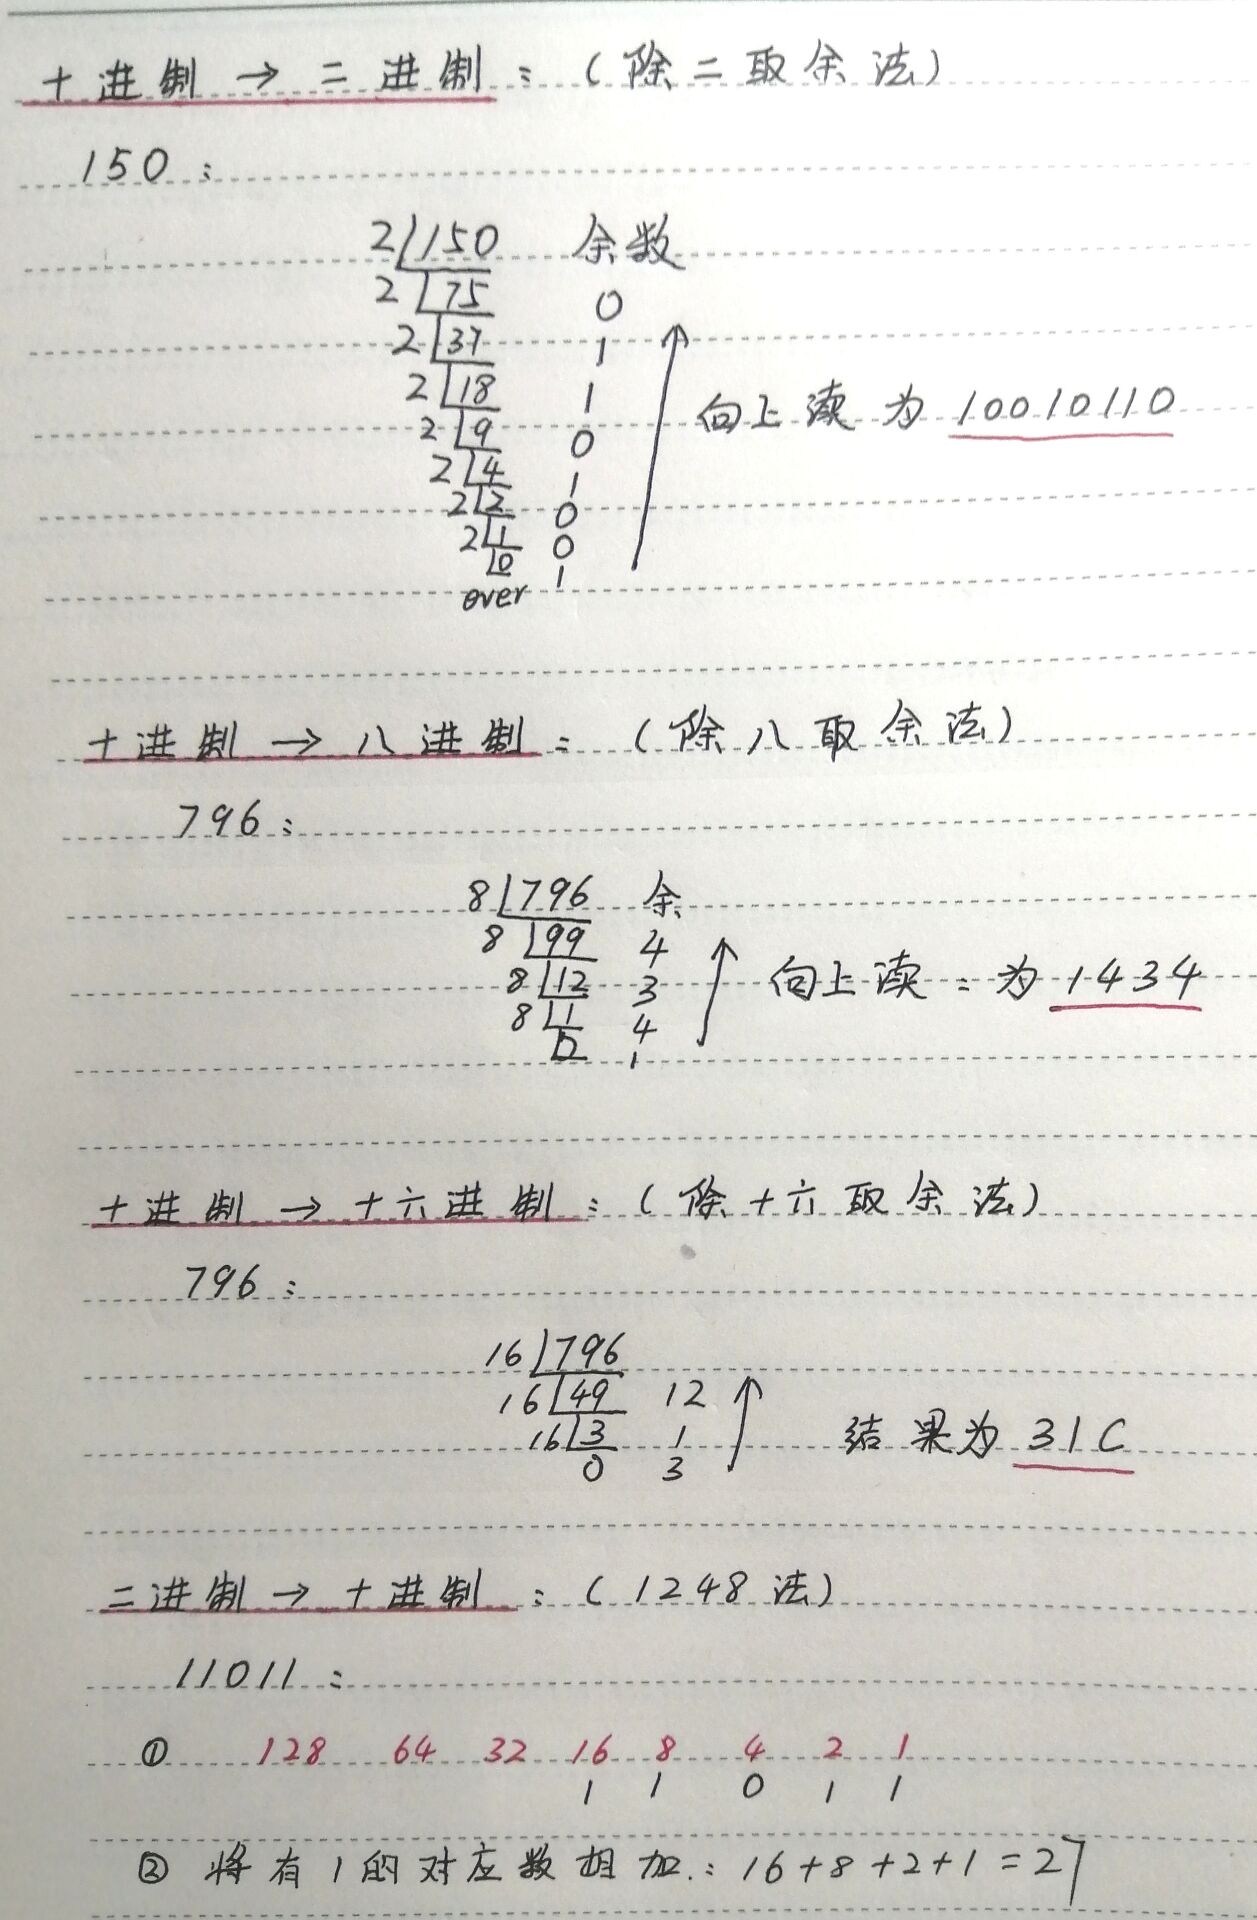 十进制 → 二进制：（除二取余法）
150：
2 150 余数
2 75 0
2 37 1
2 18 1
2 9 0
向上读 为 10010110
2 4 1
2 2 0
2 1 0
0 1
over
十进制 → 八进制：（除八取余法）
796：
8 796 余
8 99 4
8 12 3
向上读：为 1434
8 1 4
0 1
十进制 → 十六进制：（除十六取余法）
796：
16 796
16 49 12
16 3 1
结果为 31C
0 3
二进制 → 十进制：（1248法）
11011：
① 128 64 32 16 8 4 2 1
1 1 0 1 1
② 将有1的对应数相加：16+8+2+1=27